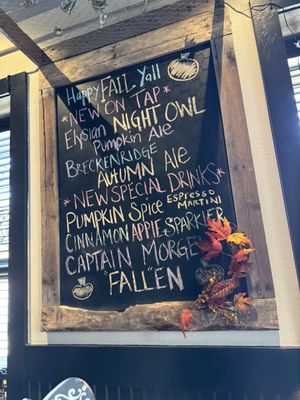 Happy FALL Y'all
*NEW ON TAP*
Elysian NIGHT OWL
Pumpkin Ale
BRECKENRIDGE
AUTUMN ALE
*NEW SPECIAL DRINKS*
PUMPKIN SPICE ESPRESSO
MARTINI
CINNAMON APPLE SPARKLER
CAPTAIN MORGE
"FALL"EN